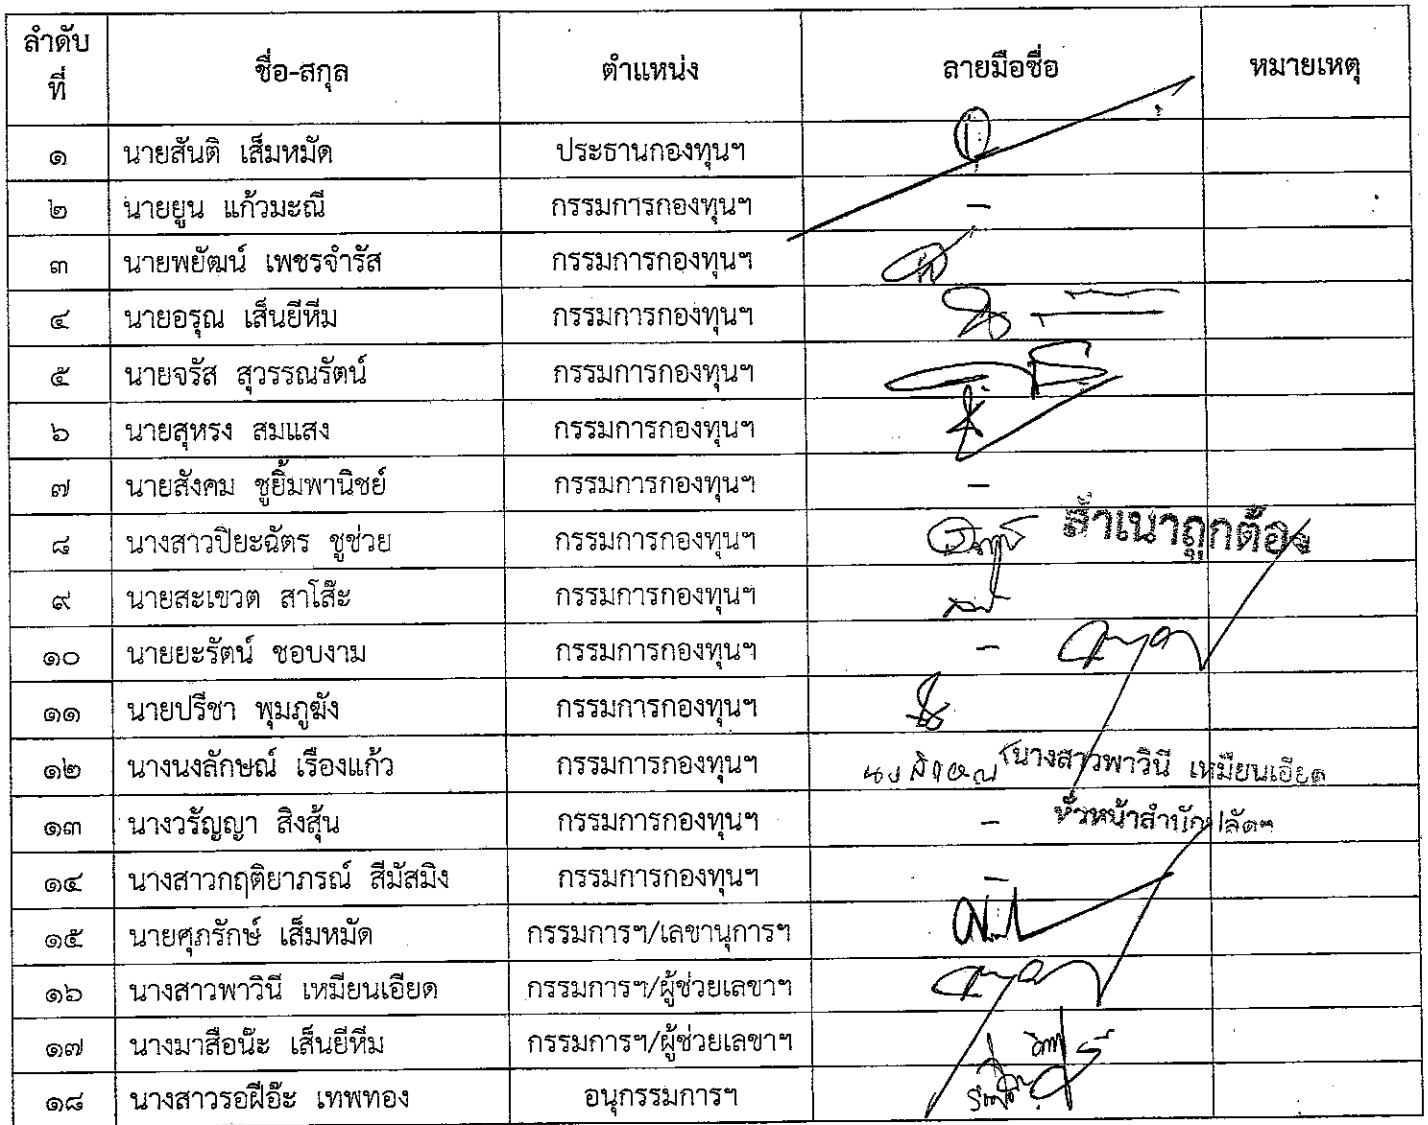 ลำดับที่ ชื่อ-สกุล ตำแหน่ง ลายมือชื่อ หมายเหตุ
๑ นายสันติ เส็มหมัด ประธานกองทุนฯ
๒ นายยูน แก้วมะณี กรรมการกองทุนฯ -
๓ นายพยัฒน์ เพชรจำรัส กรรมการกองทุนฯ
๔ นายอรุณ เส็นยีหีม กรรมการกองทุนฯ
๕ นายจรัส สุวรรณรัตน์ กรรมการกองทุนฯ
๖ นายสุหรง สมแสง กรรมการกองทุนฯ
๗ นายสังคม ชูยิ้มพานิชย์ กรรมการกองทุนฯ -
สำเนาถูกต้อง
๘ นางสาวปิยะฉัตร ชูช่วย กรรมการกองทุนฯ
๙ นายสะเขวต สาโส๊ะ กรรมการกองทุนฯ
๑๐ นายยะรัตน์ ชอบงาม กรรมการกองทุนฯ -
๑๑ นายปรีชา พุมภูฆัง กรรมการกองทุนฯ
๑๒ นางนงลักษณ์ เรืองแก้ว กรรมการกองทุนฯ นงลักษณ์
(นางสาวพาวินี เหมียนเอียด
๑๓ นางวรัญญา สิงสุ้น กรรมการกองทุนฯ -
หัวหน้าสำนักปลัดฯ
๑๔ นางสาวกฤติยาภรณ์ สีมัสมิง กรรมการกองทุนฯ -
๑๕ นายศุภรักษ์ เส็มหมัด กรรมการฯ/เลขานุการฯ
๑๖ นางสาวพาวินี เหมียนเอียด กรรมการฯ/ผู้ช่วยเลขาฯ
๑๗ นางมาสือน๊ะ เส็นยีหีม กรรมการฯ/ผู้ช่วยเลขาฯ
๑๘ นางสาวรอฝีอ๊ะ เทพทอง อนุกรรมการฯ